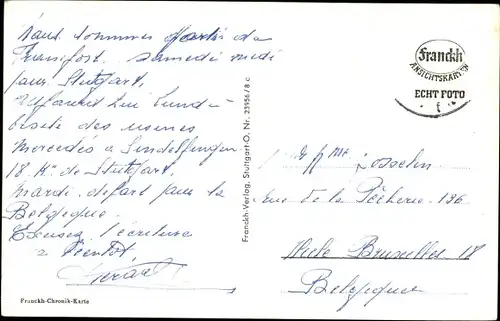 Nous sommes partis de
samedi midi
pour Stuttgart.
Aujourd'hui Lundi
visite des usines
Mercédès à Sindelfingen
18 Km de Stuttgart.
Mardi départ pour la
Belgique.
Excusez l'écriture
à bientôt
Franckh-Chronik-Karte
Franckh-Verlag, Stuttgart-O, Nr. 23956/8 c
Franckh
ANSICHTSKARTEN
ECHT FOTO
Mme Josselin
rue de la Pêcherie 196
Uccle Bruxelles 18
Belgique